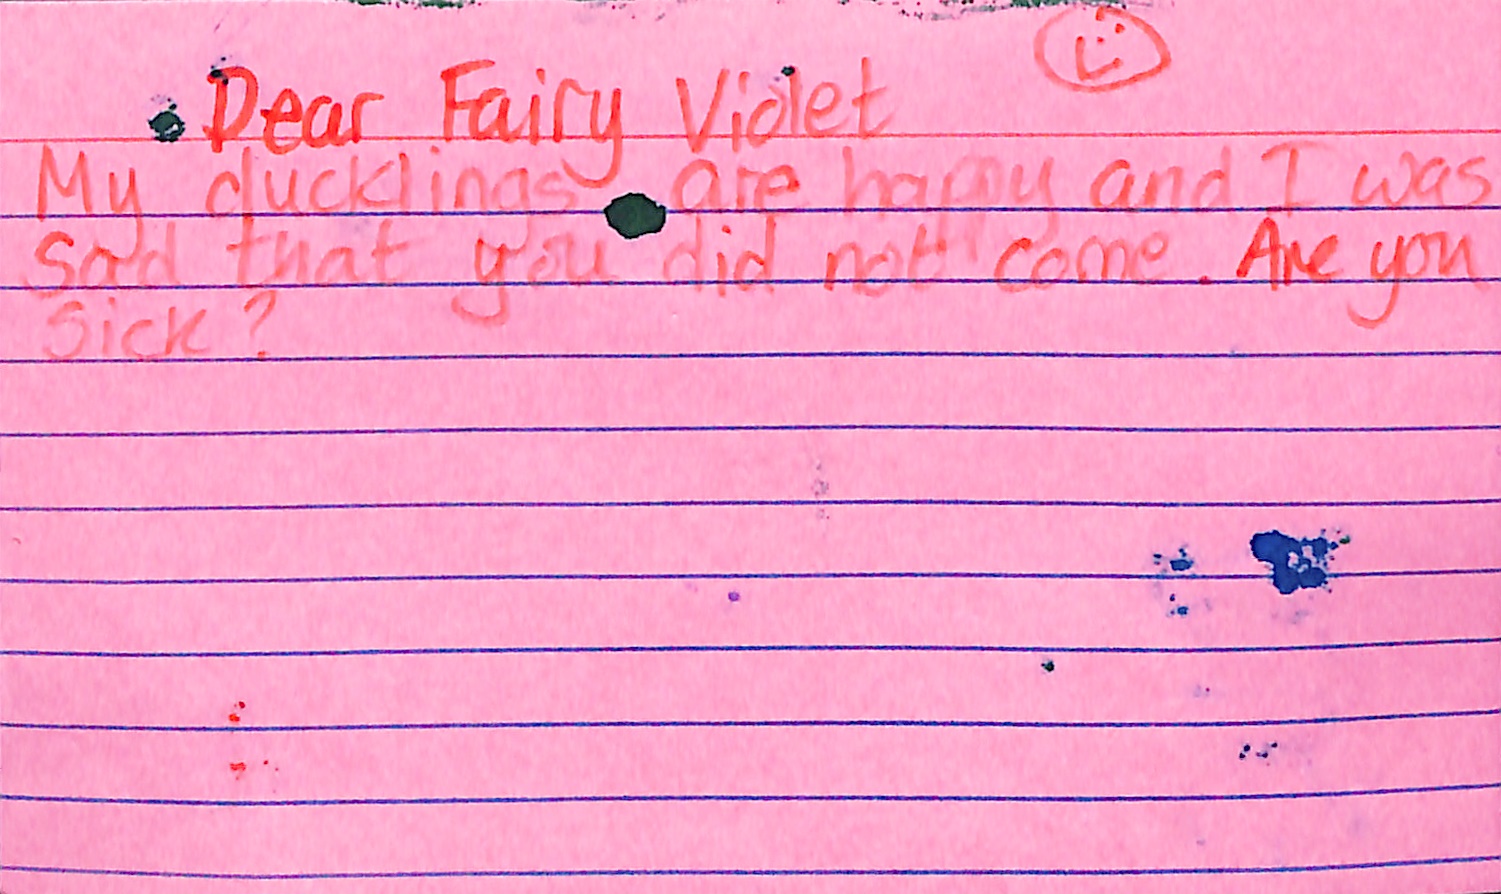 Dear Fairy Violet
My ducklings are happy and I was
sad that you did not come. Are you
sick?